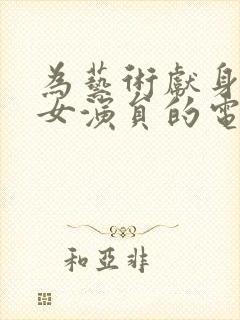 為藝術獻身
女演員的電
和亞非